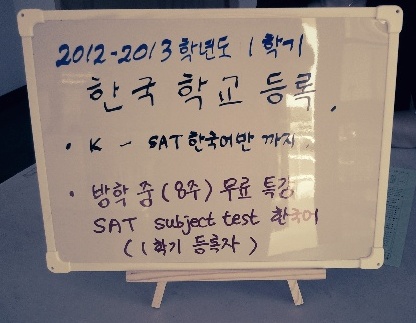 2012-2013 학년도 1 학기
한국 학교 등록.
• K - SAT 한국어반 까지.
• 방학 중 (8주) 무료 특강
SAT subject test 한국어
(1학기 등록자)